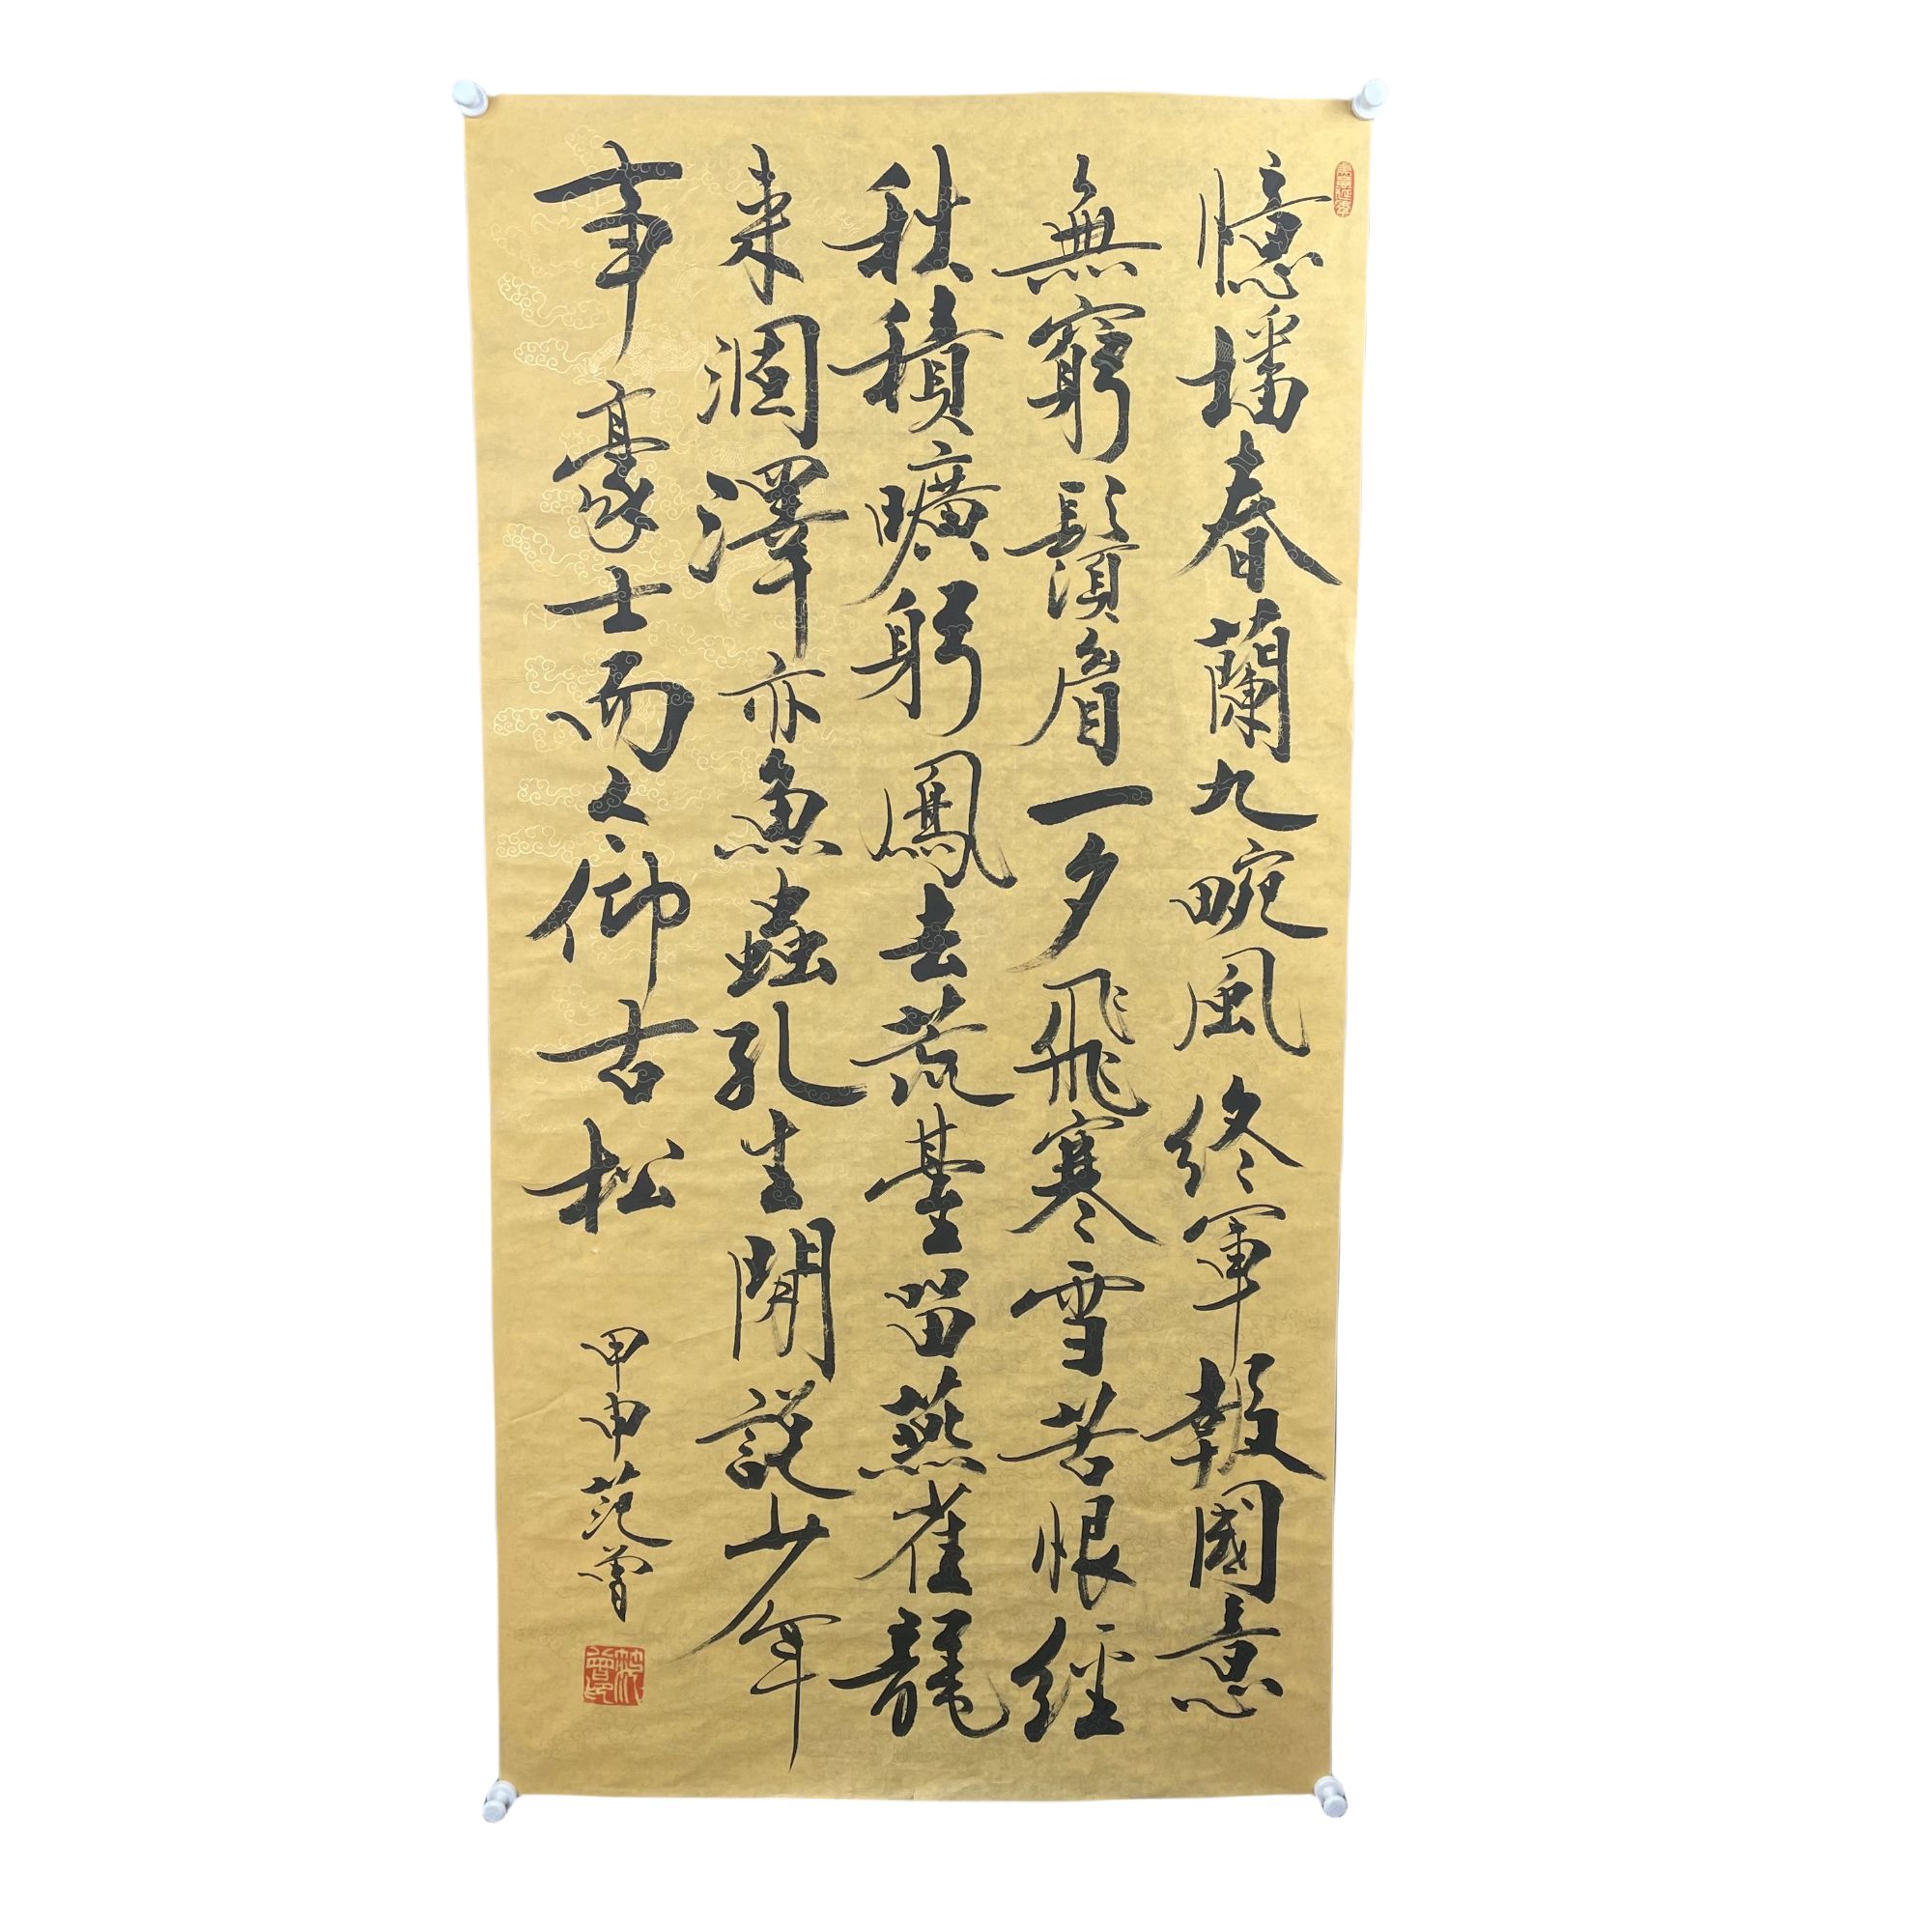 憶播春蘭九畹風終軍報國意
無窮鬚眉一夕飛寒雪苦恨經
秋積曠躬鳳去荒臺留燕雀龍
來涸澤亦魚蟲孔生閒說少年
事豪士而今仰古松
甲申范曾
范曾印